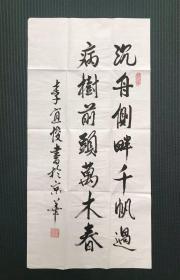 沉舟側畔千帆過
病樹前頭萬木春
李宜俊書於京華